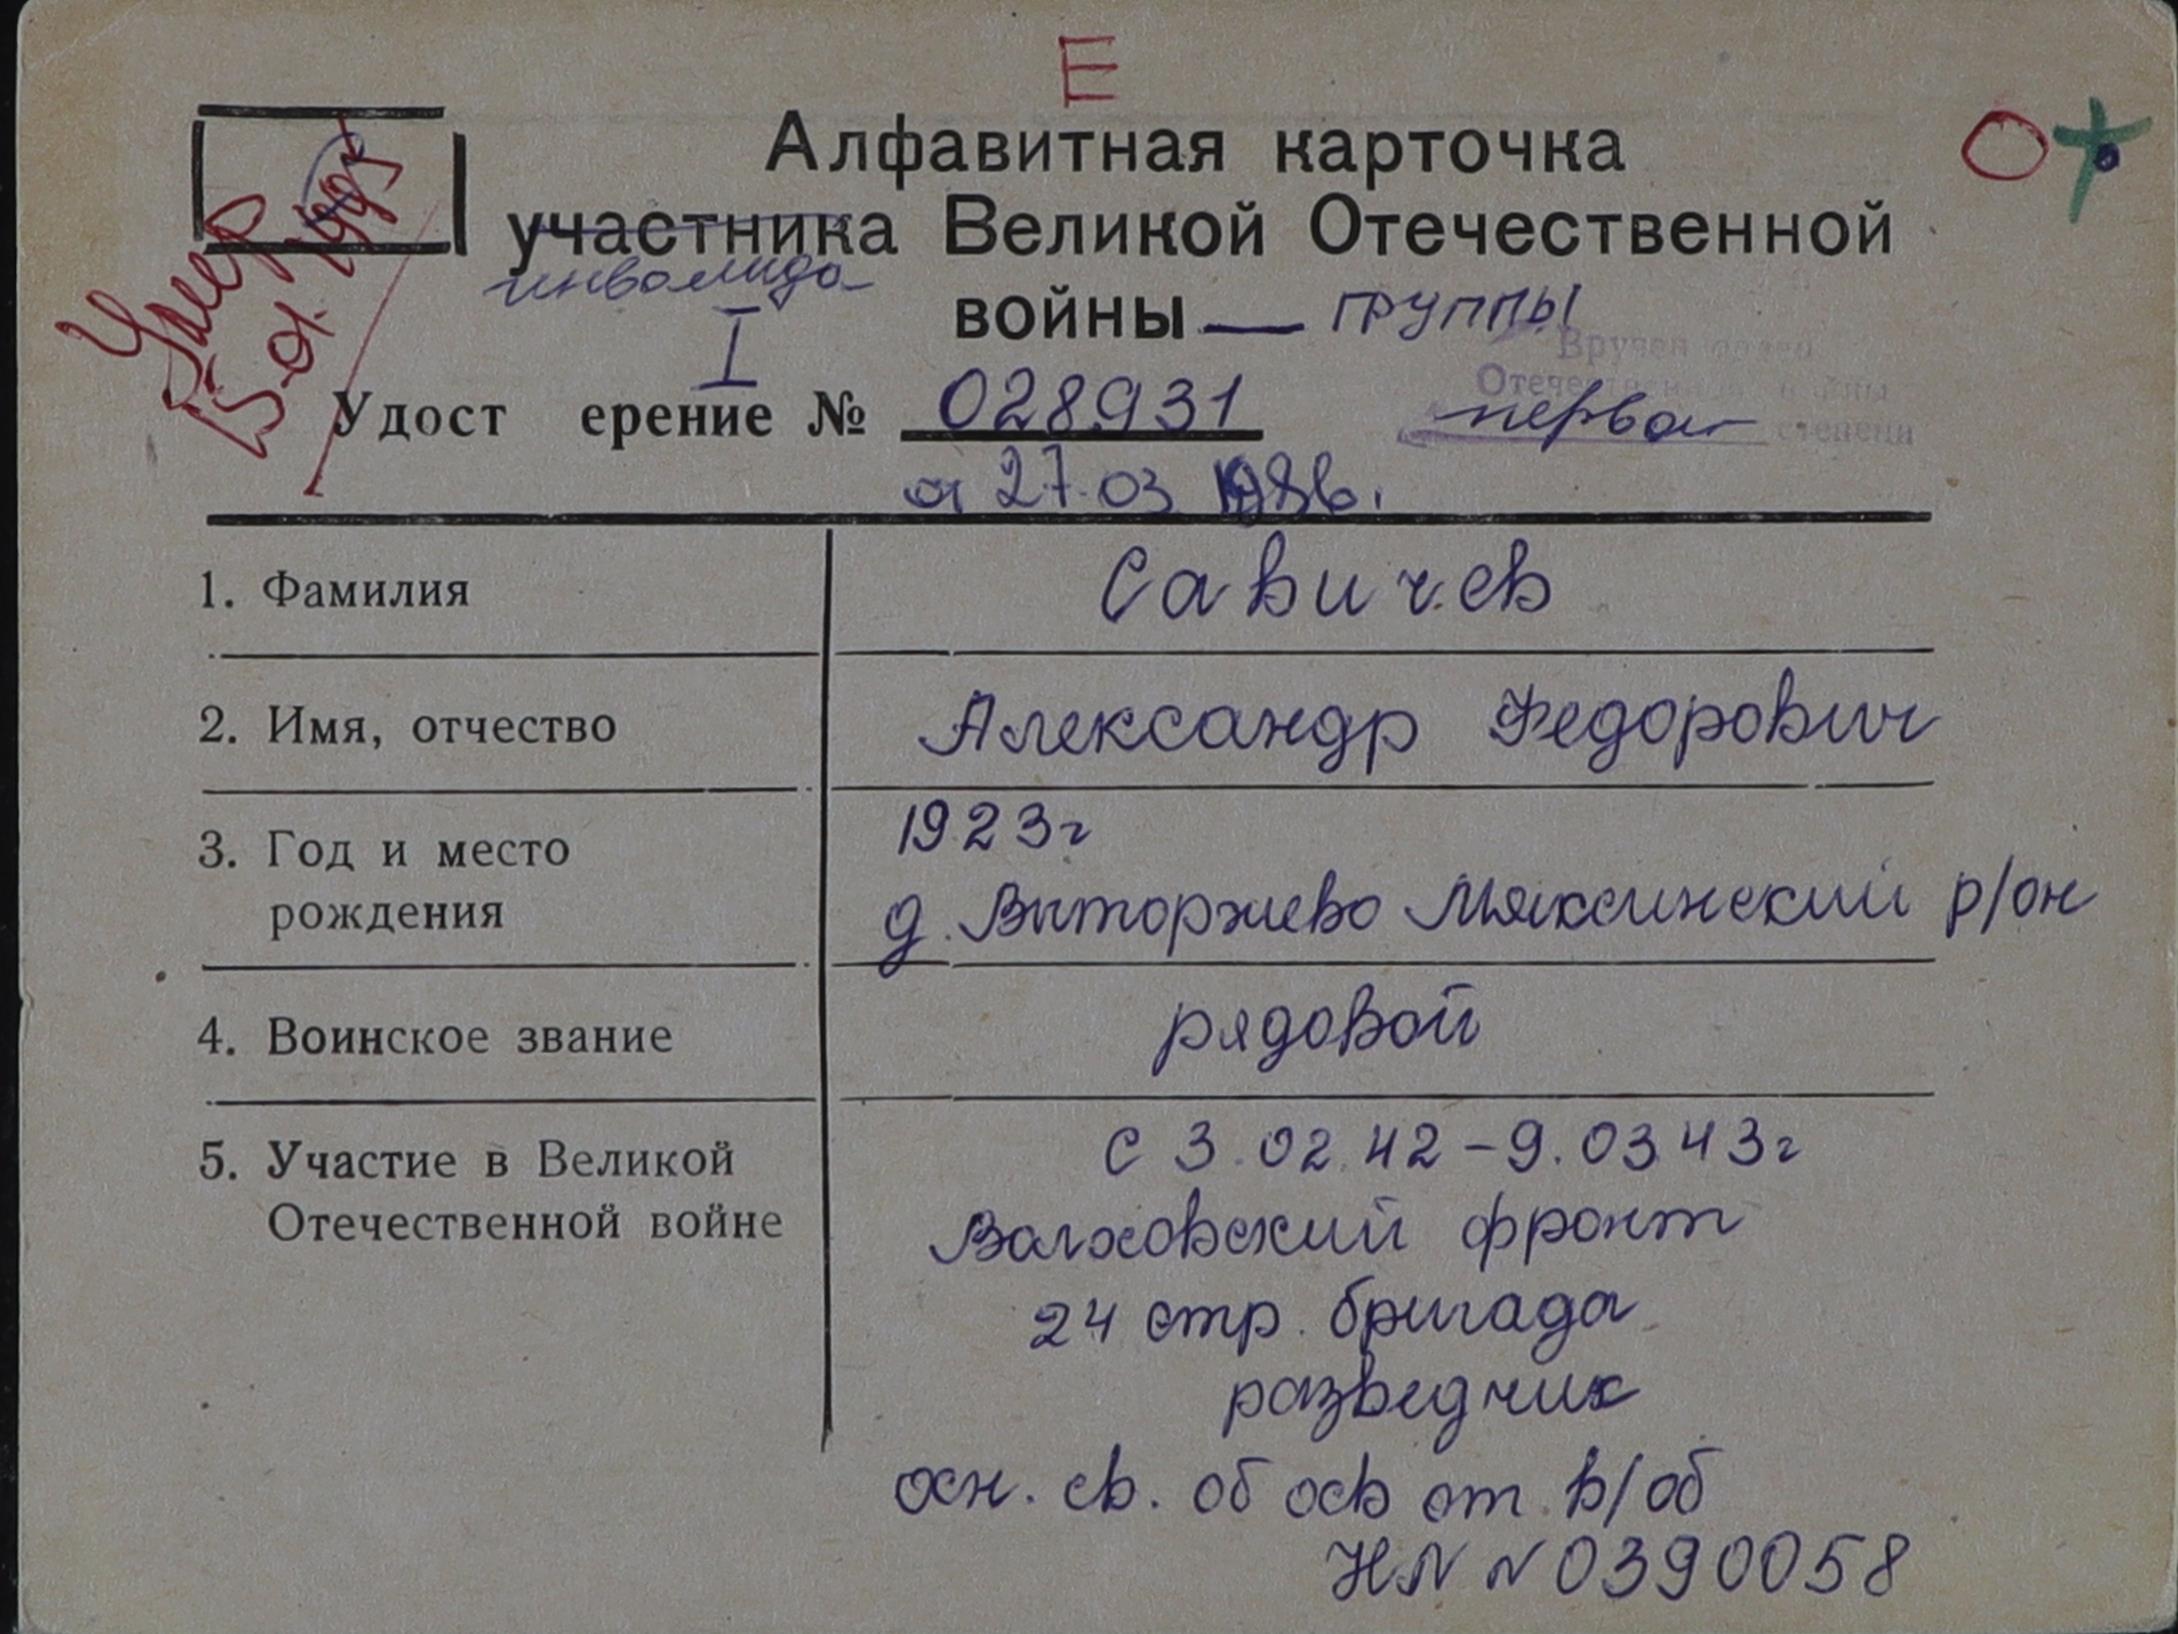 Е
Алфавитная карточка
О
участника Великой Отечественной
инвалида
войны — группы
I
Умер
5.01.1995
Вручен орден
Отечественной войны
первой степени
Удост ерение № 028931
от 27.03 1986.
1. Фамилия Савичев
2. Имя, отчество Александр Федорович
3. Год и место 1923г
рождения д. Выторжево Мяксинский р/он
4. Воинское звание рядовой
5. Участие в Великой с 3.02.42-9.03.43г
Отечественной войне Волховский фронт
24 стр. бригада
разведчик
осн. св. об осв от в/об
НN N 0390058